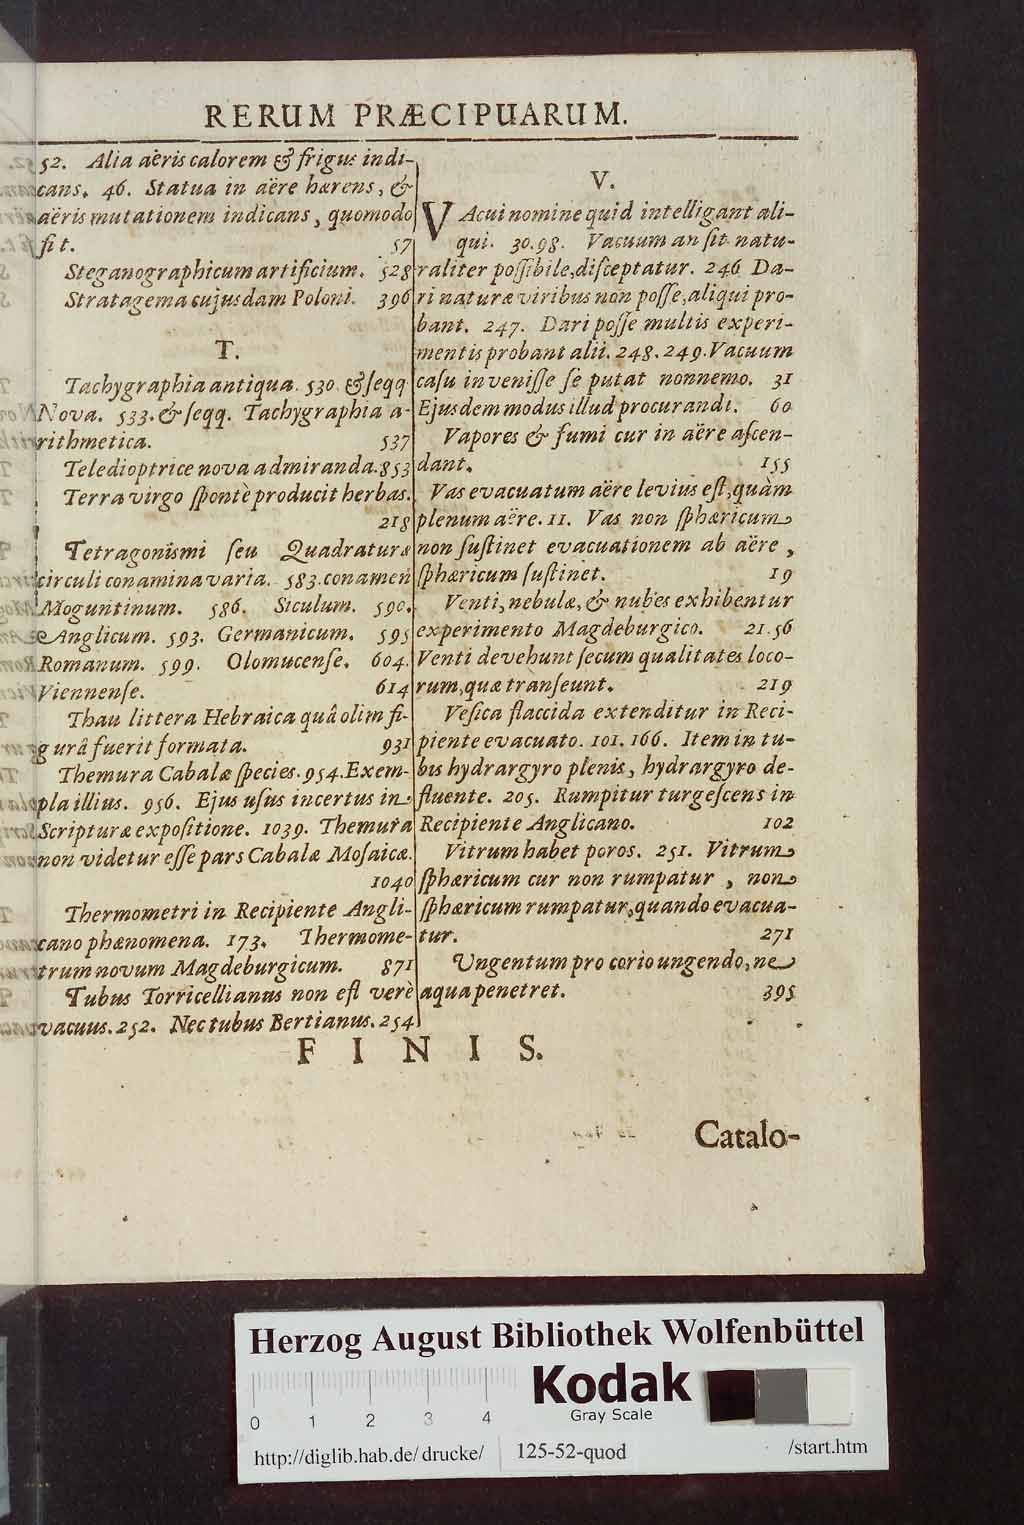 RERUM PRÆCIPUARUM.
52. Alia aëris calorem & frigus indi-
cans. 46. Statua in aëre hærens, &
aëris mutationem indicans, quomodo
ſit. 57
Steganographicum artificium. 528
Stratagema cujusdam Poloni. 396
T.
Tachygraphia antiqua. 530. & ſeqq
Nova. 533. & ſeqq. Tachygraphia a-
rithmetica. 537
Teledioptrice nova admiranda. 853
Terra virgo ſpontè producit herbas.
218
Tetragonismi ſeu Quadraturæ
circuli conamina varia. 583. conamen
Moguntinum. 586. Siculum. 590.
Anglicum. 593. Germanicum. 595
Romanum. 599. Olomucenſe. 604.
Viennenſe. 614
Thau littera Hebraica quâ olim fi-
gurâ fuerit formata. 931
Themura Cabalæ ſpecies. 954. Exem-
pla illius. 956. Ejus uſus incertus in
Scripturæ expoſitione. 1039. Themura
non videtur eſſe pars Cabalæ Moſaicæ.
1040
Thermometri in Recipiente Angli-
cano phænomena. 173. Thermome-
trum novum Magdeburgicum. 871
Tubus Torricellianus non eſt verè
vacuus. 252. Nec tubus Bertianus. 254
V.
VAcui nomine quid intelligant ali-
qui. 30.98. Vacuum an ſit natu-
raliter poſſibile, diſceptatur. 246 Da-
ri naturæ viribus non poſſe, aliqui pro-
bant. 247. Dari poſſe multis experi-
mentis probant alii. 248. 249. Vacuum
caſu inveniſſe ſe putat nonnemo. 31
Ejusdem modus illud procurandi. 60
Vapores & fumi cur in aëre aſcen-
dant. 155
Vas evacuatum aëre levius eſt, quàm
plenum aëre. 11. Vas non ſphæricum
non ſuſtinet evacuationem ab aëre,
ſphæricum ſuſtinet. 19
Venti, nebulæ, & nubes exhibentur
experimento Magdeburgico. 21.56
Venti devehunt ſecum qualitates loco-
rum, quæ tranſeunt. 219
Veſica flaccida extenditur in Reci-
piente evacuato. 101. 166. Item in tu-
bis hydrargyro plenis, hydrargyro de-
fluente. 205. Rumpitur turgeſcens in
Recipiente Anglicano. 102
Vitrum habet poros. 251. Vitrum
ſphæricum cur non rumpatur, non
ſphæricum rumpatur, quando evacua-
tur. 271
Ungentum pro corio ungendo, ne
aqua penetret. 395
FINIS.
Catalo-
Herzog August Bibliothek Wolfenbüttel
Kodak
Gray Scale
0 1 2 3 4
http://diglib.hab.de/drucke/ 125-52-quod /start.htm